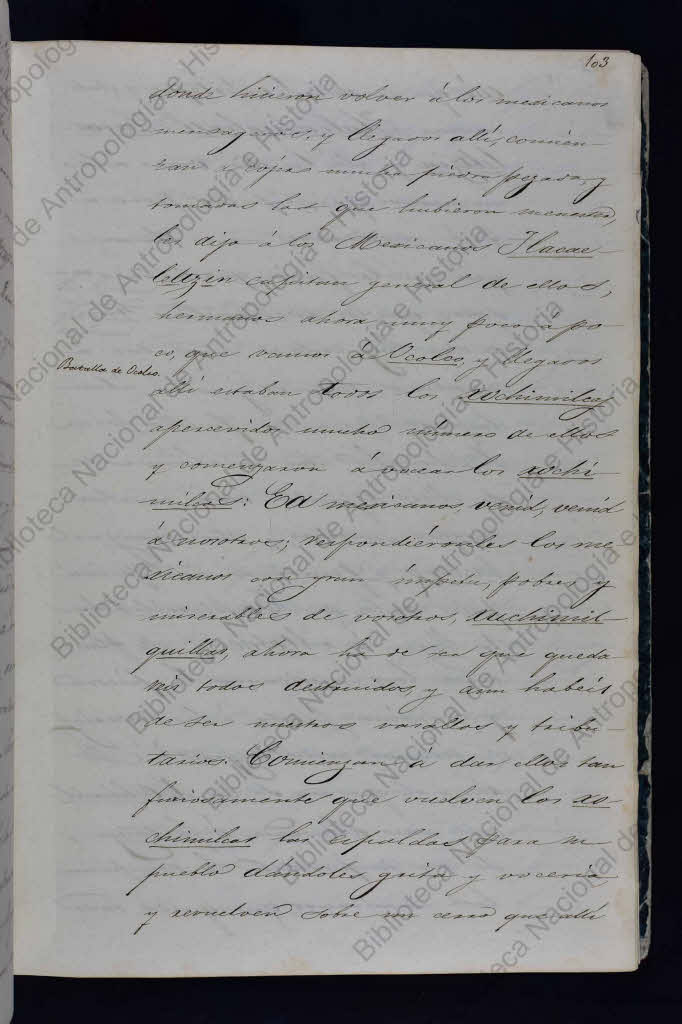 103
donde hicieron volver á los mexicanos
mensageros, y llegaros allí, comien-
zan á copas mucha piedra pezada, y
tomaras las que hubieron menester,
les dijo á los Mexicanos Tlacae-
leltzin capitan general de ellos;
hermanos ahora muy poco á po-
co, que vamos á Ocolco, y llegaros
Batalla de Ocolco.
allí estaban todos los xochimilcas
apercevidos mucho número de ellos
y comenzaron á vocear los xochi-
milcas: Ea mexicanos, venid, venid
á nosotros; respondiéronles los me-
xicanos con gran ímpetu, pobres y
miserables de vosotros, xuchimil-
quillas, ahora ha de ser que queda-
reis todos destruidos, y aun habeis
de ser nuestros vasallos y tribu-
tarios. Comienzan á dar ellos tan
furiosamente que vuelven los xo-
chimilcas las espaldas para su
pueblo dándoles grita y voceria
y revuelven sobre un cerro que allí
Biblioteca Nacional de Antropología e Historia